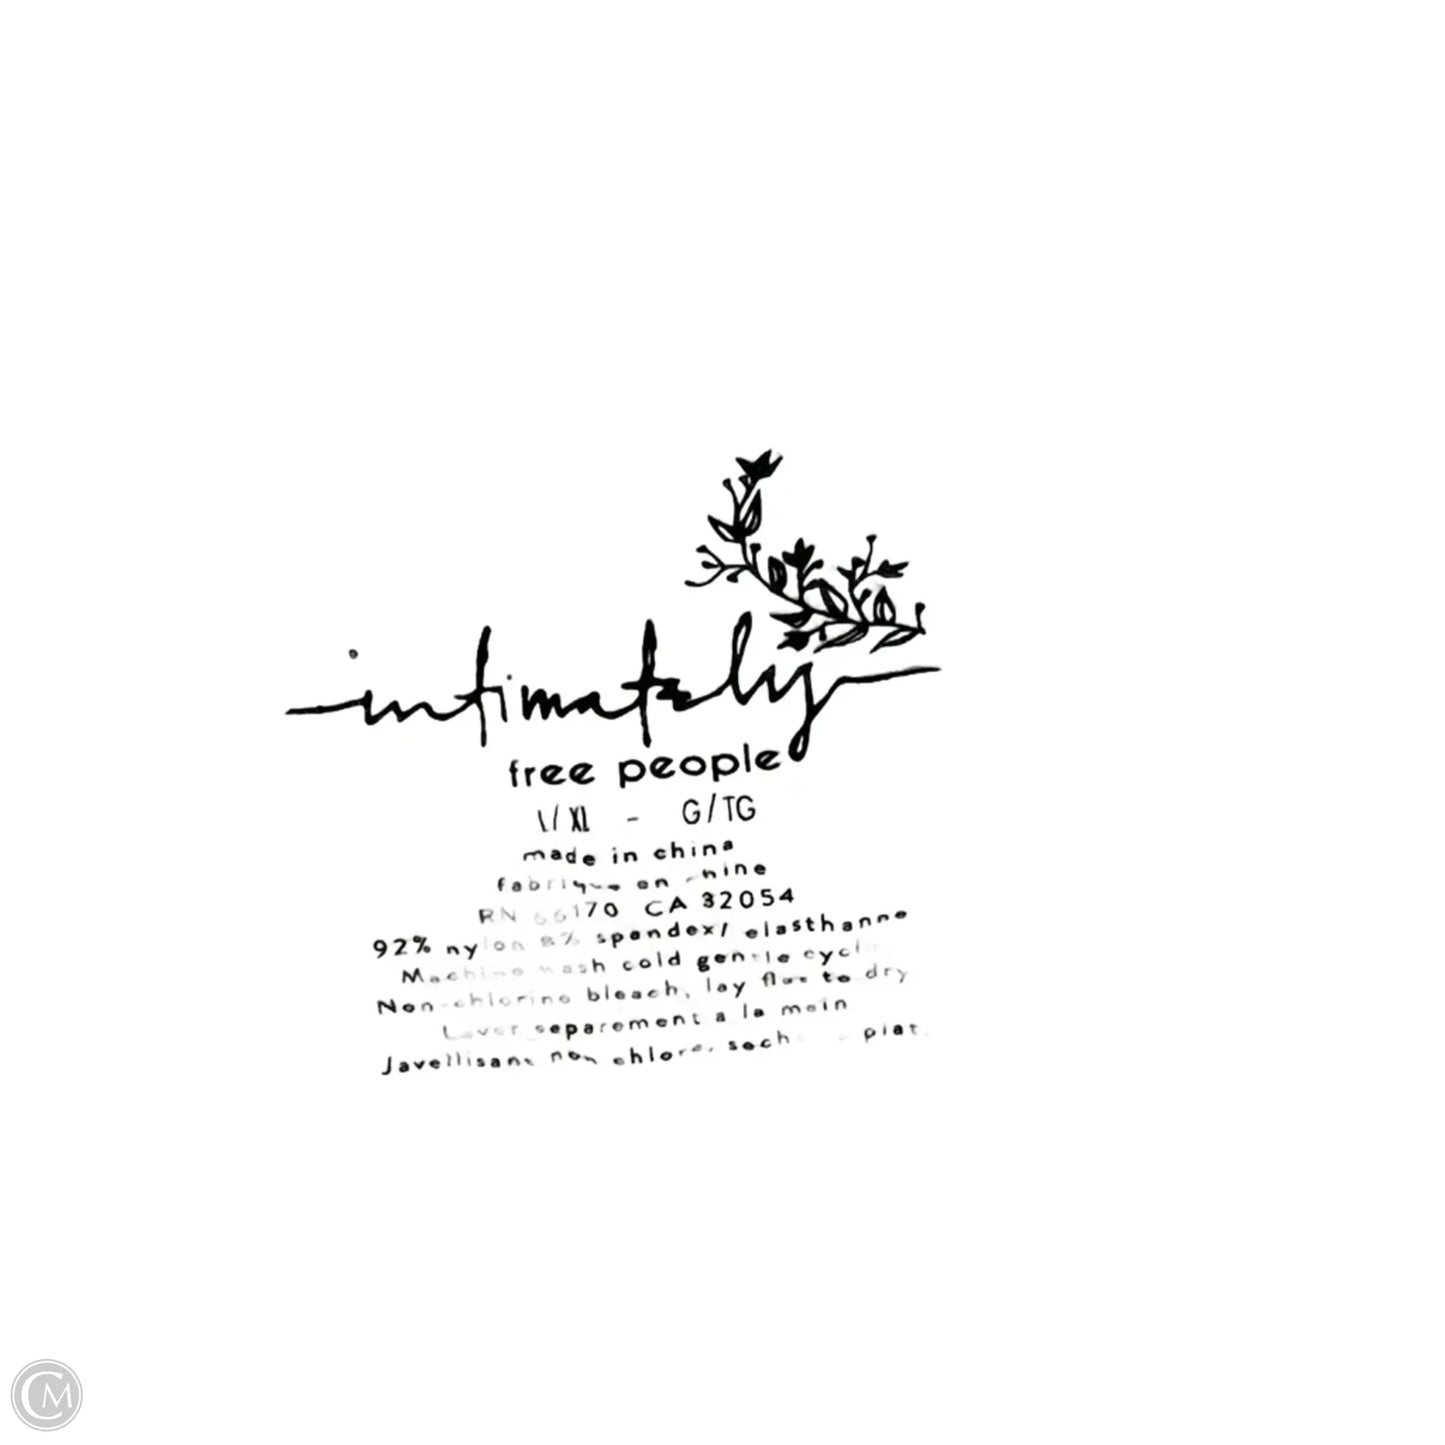 intimately
free people
L/XL - G/TG
made in china
fabrique en chine
RN 66170 CA 32054
92% nylon 8% spandex/ elasthanne
Machine wash cold gentle cycle
Non-chlorine bleach, lay flat to dry
Laver separement a la main
Javellisant non chlore, secher a plat.
CM